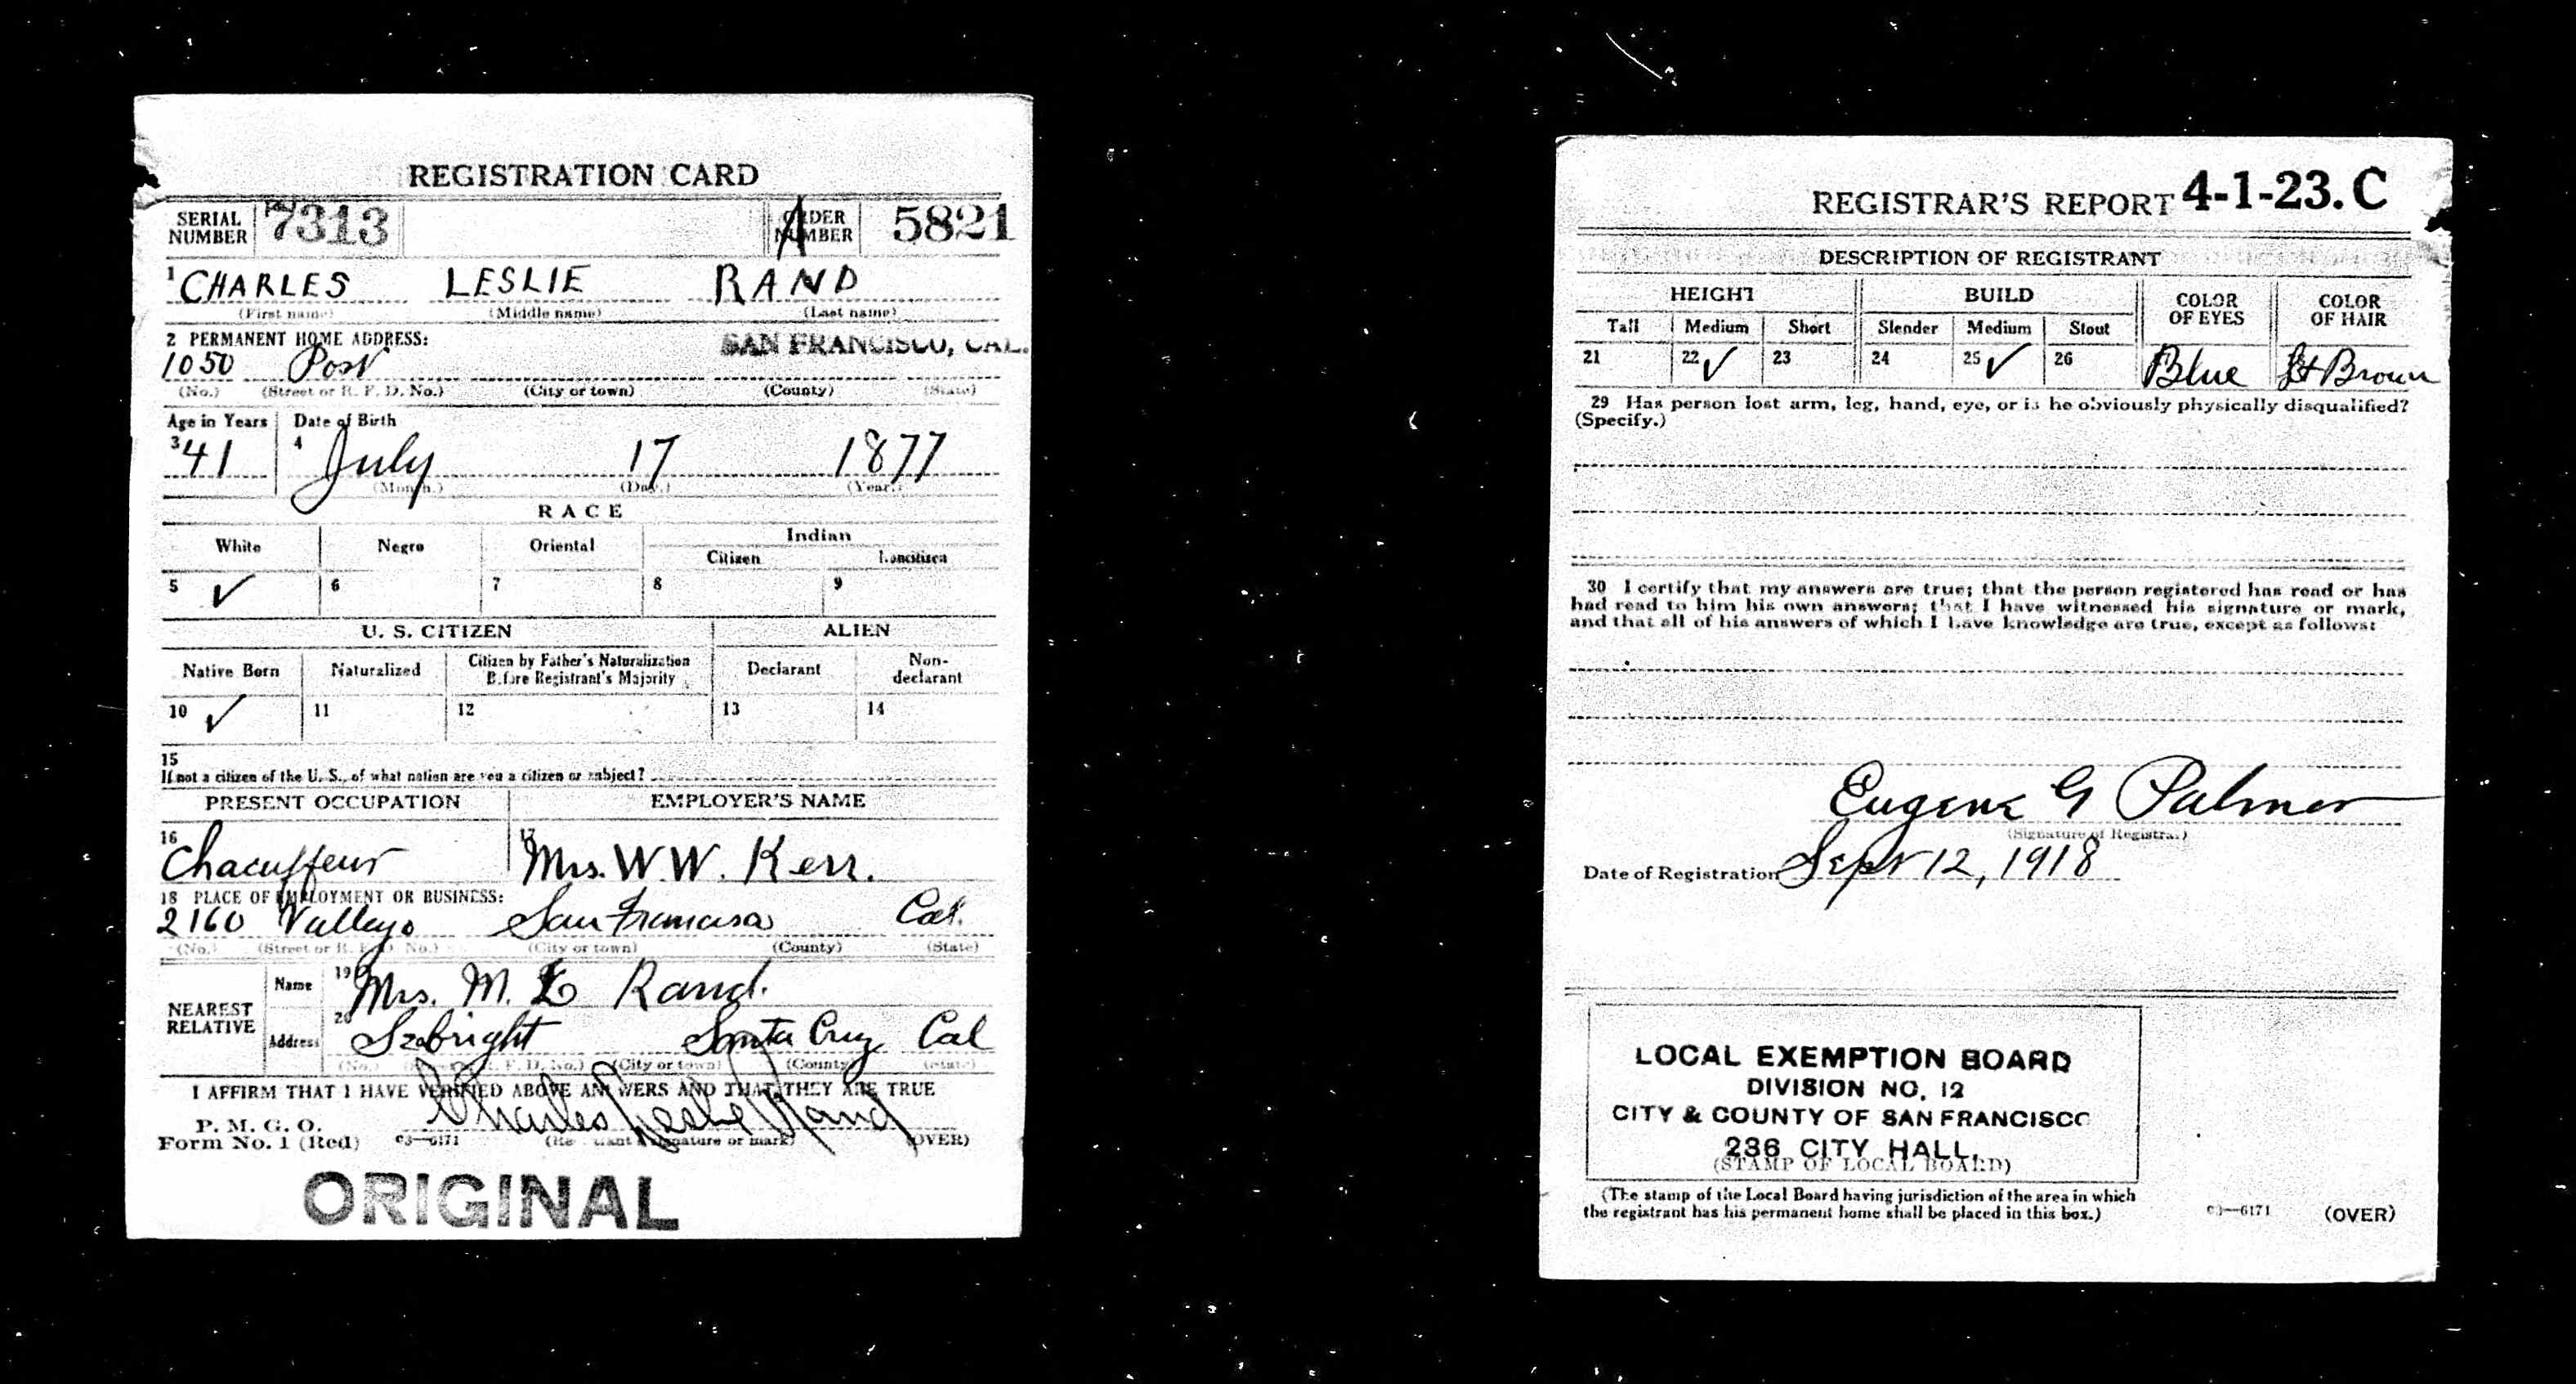 REGISTRATION CARD
SERIAL NUMBER 7313 ORDER NUMBER A 5821
1 CHARLES LESLIE RAND
(First name) (Middle name) (Last name)
2 PERMANENT HOME ADDRESS: SAN FRANCISCO, CAL.
1050 Post
(No.) (Street or R. F. D. No.) (City or town) (County) (State)
Age in Years Date of Birth
3 41 4 July 17 1877
(Month.) (Day.) (Year.)
RACE
White Negro Oriental Indian
Citizen Noncitizen
5 ✓ 6 7 8 9
U. S. CITIZEN ALIEN
Native Born Naturalized Citizen by Father's Naturalization Before Registrant's Majority Declarant Non-declarant
10 ✓ 11 12 13 14
15
If not a citizen of the U. S., of what nation are you a citizen or subject?
PRESENT OCCUPATION EMPLOYER'S NAME
16 Chacuffeur 17 Mrs. W. W. Kerr.
18 PLACE OF EMPLOYMENT OR BUSINESS:
2160 Vallejo San Francisco Cal.
(No.) (Street or R. F. D. No.) (City or town) (County) (State)
NEAREST RELATIVE
Name 19 Mrs. M. Rand.
Address 20 Seabright Santa Cruz Cal
(No.) (Street or R. F. D. No.) (City or town) (County) (State)
I AFFIRM THAT I HAVE VERIFIED ABOVE ANSWERS AND THAT THEY ARE TRUE
P. M. G. O.
Form No. 1 (Red) 03—6171 Charles Leslie Rand
(Registrant's signature or mark) (OVER)
ORIGINAL
REGISTRAR'S REPORT 4-1-23. C
DESCRIPTION OF REGISTRANT
HEIGHT BUILD COLOR OF EYES COLOR OF HAIR
Tall Medium Short Slender Medium Stout
21 22 ✓ 23 24 25 ✓ 26 Blue Lt Brown
29 Has person lost arm, leg, hand, eye, or is he obviously physically disqualified?
(Specify.)
30 I certify that my answers are true; that the person registered has read or has
had read to him his own answers; that I have witnessed his signature or mark,
and that all of his answers of which I have knowledge are true, except as follows:
Eugene G Palmer
(Signature of Registrar.)
Date of Registration Sept 12, 1918
LOCAL EXEMPTION BOARD
DIVISION NO. 12
CITY & COUNTY OF SAN FRANCISCO
236 CITY HALL.
(STAMP OF LOCAL BOARD)
(The stamp of the Local Board having jurisdiction of the area in which
the registrant has his permanent home shall be placed in this box.)
03—6171 (OVER)